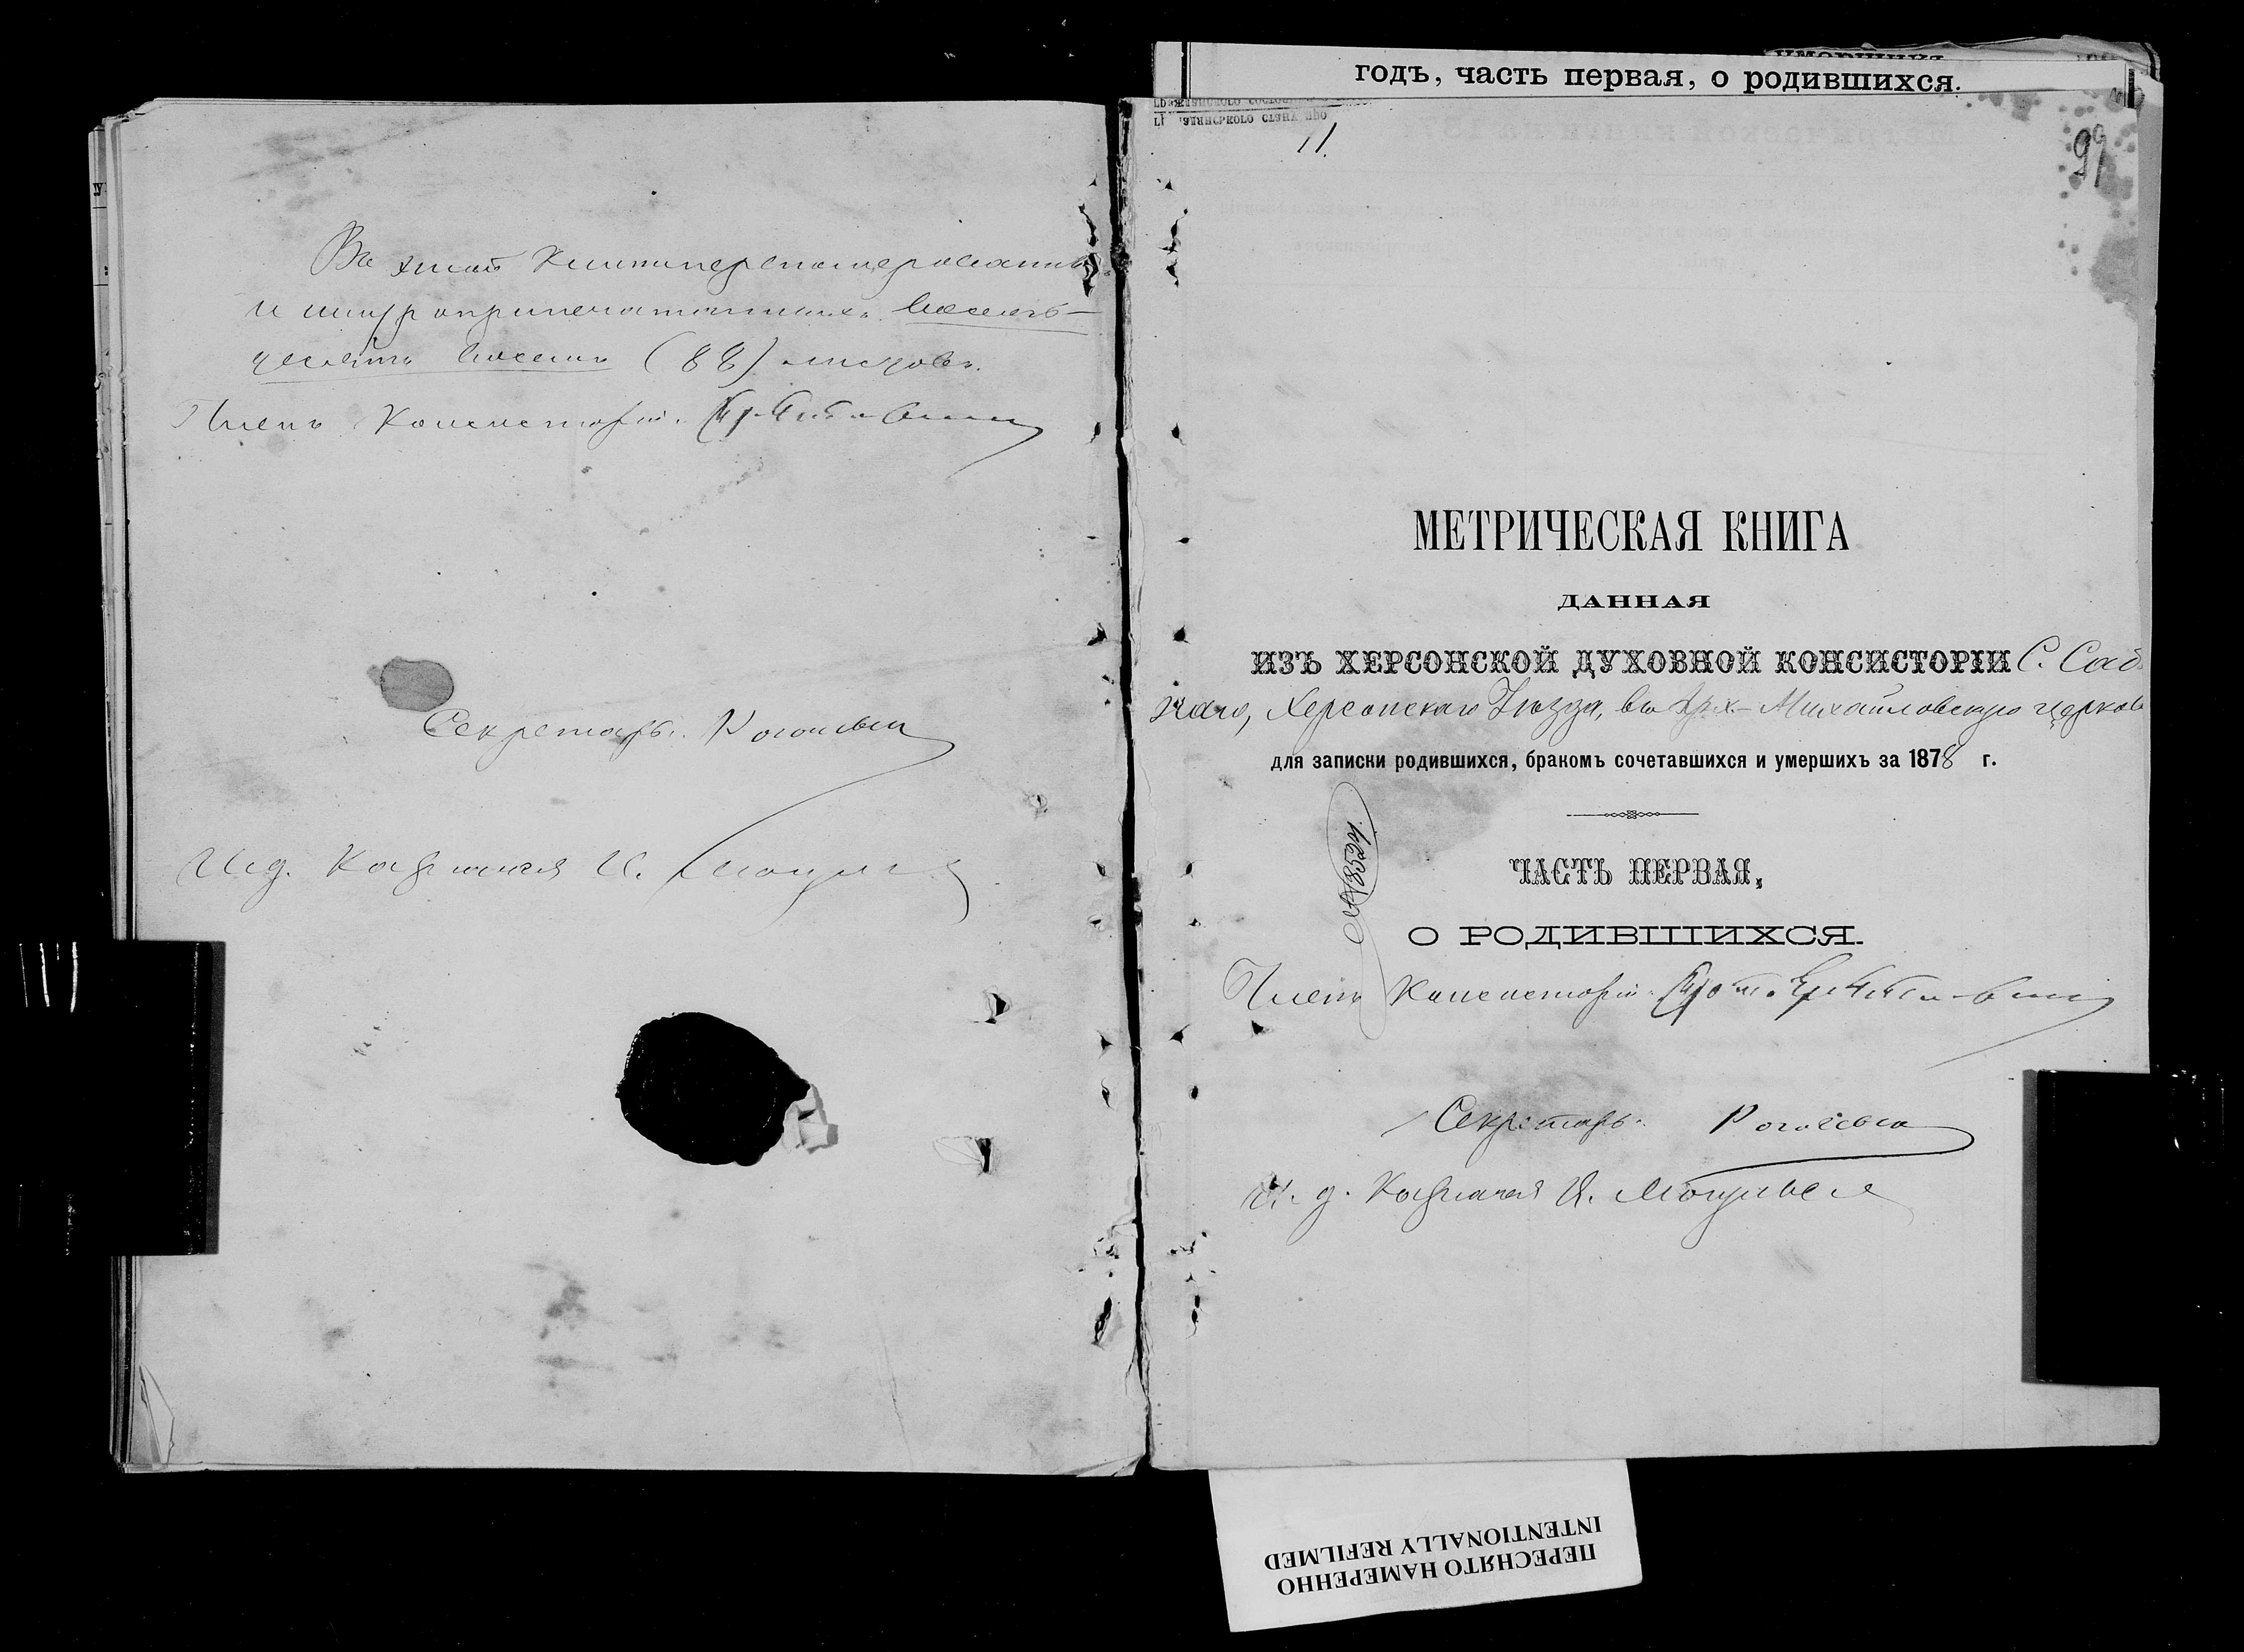 Въ этой книги перенумерованныхъ
и шнуроприпечатанныхъ восемь-
десятъ восемь (88) листовъ.
Членъ Консисторіи
Секретарь
И. д. Казначея И.
годъ, часть первая, о родившихся.
11.
99
МЕТРИЧЕСКАЯ КНИГА
ДАННАЯ
ИЗЪ ХЕРСОНСКОЙ ДУХОВНОЙ КОНСИСТОРІИ С. Сад
чаго, Херсонскаго Уѣзда, въ Арх.-Михайловскую церковь
для записки родившихся, бракомъ сочетавшихся и умершихъ за 1878 г.
ЧАСТЬ ПЕРВАЯ,
О РОДИВШИХСЯ.
Членъ Консисторіи Прот.
Секретарь
И. д. Казначея
ПЕРЕСНЯТО НАМЕРЕННО
INTENTIONALLY REFILMED